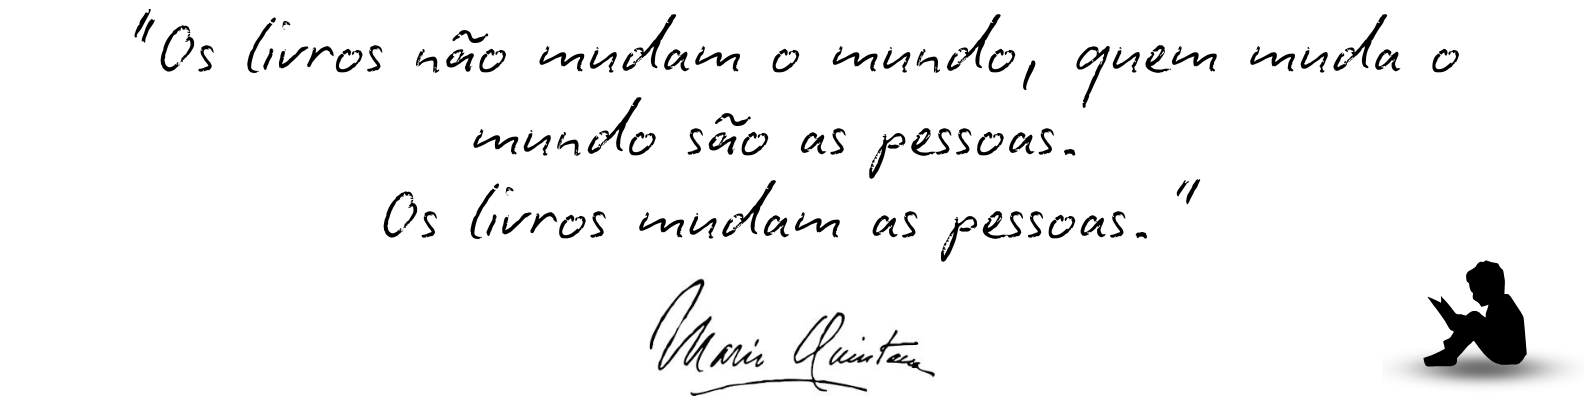 "Os livros não mudam o mundo, quem muda o
mundo são as pessoas.
Os livros mudam as pessoas."
Mario Quintana